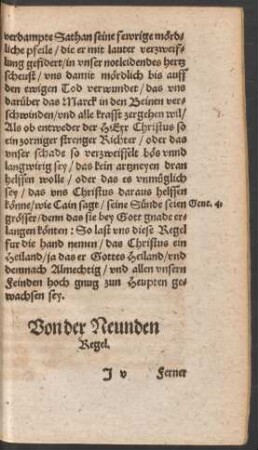 verdampte Sathan seine fewrige mörds
liche pfeile / die er mit lauter verzweifs
lung gefidert / in vnser notleidendes hertz
scheust / vns damit mördlich bis auff
den ewigen Tod verwundet / das vns
darüber das Marck in den Beinen vers
schwinden / vnd alle krafft zergehen wil /
Als ob entweder der HErr Christus so
ein zorniger strenger Richter / oder das
vnser schade so verzweiffelt bös vnnd
langwirig sey / das kein artzneyen dran
helffen wolle / oder das es vnmüglich
sey / das vns Christus daraus helffen
könne / wie Cain sagt / seine Sünde seien Gene. 4.
grösser / denn das sie bey Gott gnade ers
langen könten : So last vns diese Regel
für die hand nemen / das Christus ein
Heiland / ja das er Gottes Heiland / vnd
demnach Almechtig / vnd allen vnsern
Feinden hoch gnug zun Heupten ges
wachsen sey.
Von der Neunden
Regel.
J v Ferner